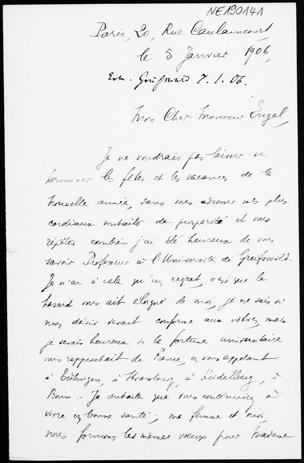 NE190141
Paris, 20, Rue Caulaincourt
le 5 Janvier 1906
Greifswald 7. 1. 06.
Mon Cher Monsieur Engel,
Je ne voudrais pas laisser se
terminer les fêtes et les vacances de la
Nouvelle année, sans vous adresser mes plus
cordiaux souhaits de prospérité et vous
répéter combien j'ai été heureux de vous
savoir Professeur à l'Université de Greifswald.
Je n'ai à cela qu'un regret, c'est que le
hasard vous ait éloigné de moi, je ne sais si
mon désir serait conforme aux vôtres, mais
je serais heureux si la fortune universitaire
vous rapprochait de Paris, en vous appelant
à Tübingen, à Strasbourg, à Heidelberg, à
Bonn. Je souhaite que vous continuiez à
vivre en bonne santé; ma femme et moi,
nous formons les mêmes voeux pour Madame